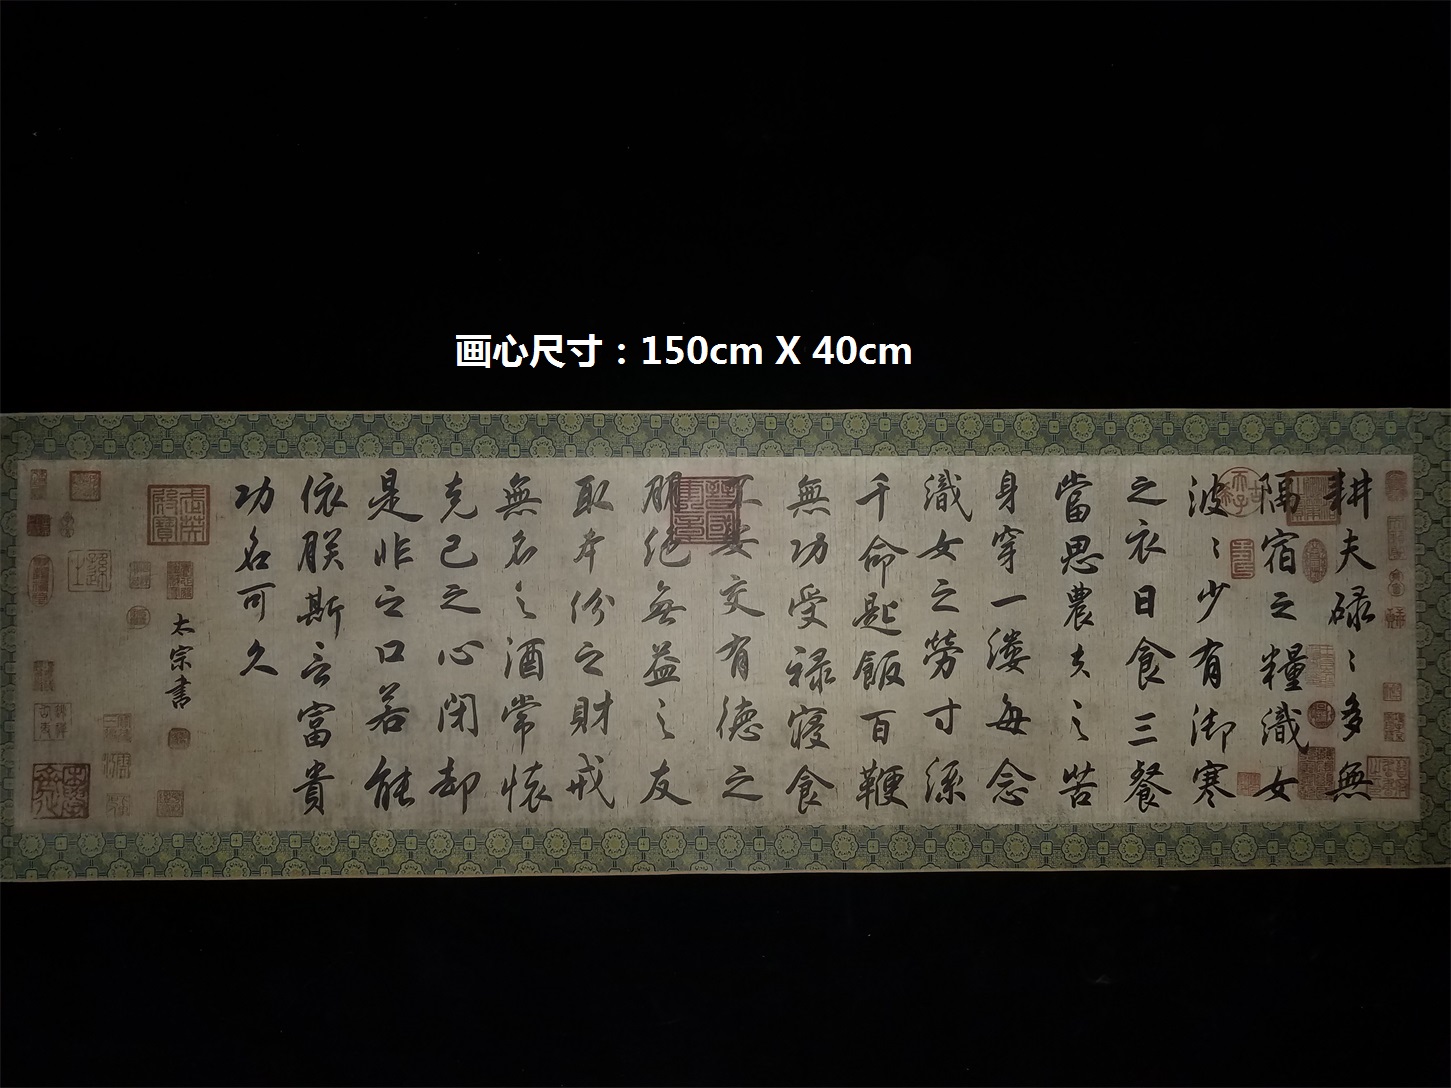 画心尺寸：150cm X 40cm
耕夫碌〻多無
隔宿之糧織女
波〻少有御寒
之衣日食三餐
當思農夫之苦
身穿一縷每念
織女之勞寸絲
千命匙飯百鞭
無功受禄寝食
不安交有德之
朋绝無益之友
取本份之財戒
無名之酒常懷
克己之心闭却
是非之口若能
依朕斯言富貴
功名可久
太宗書